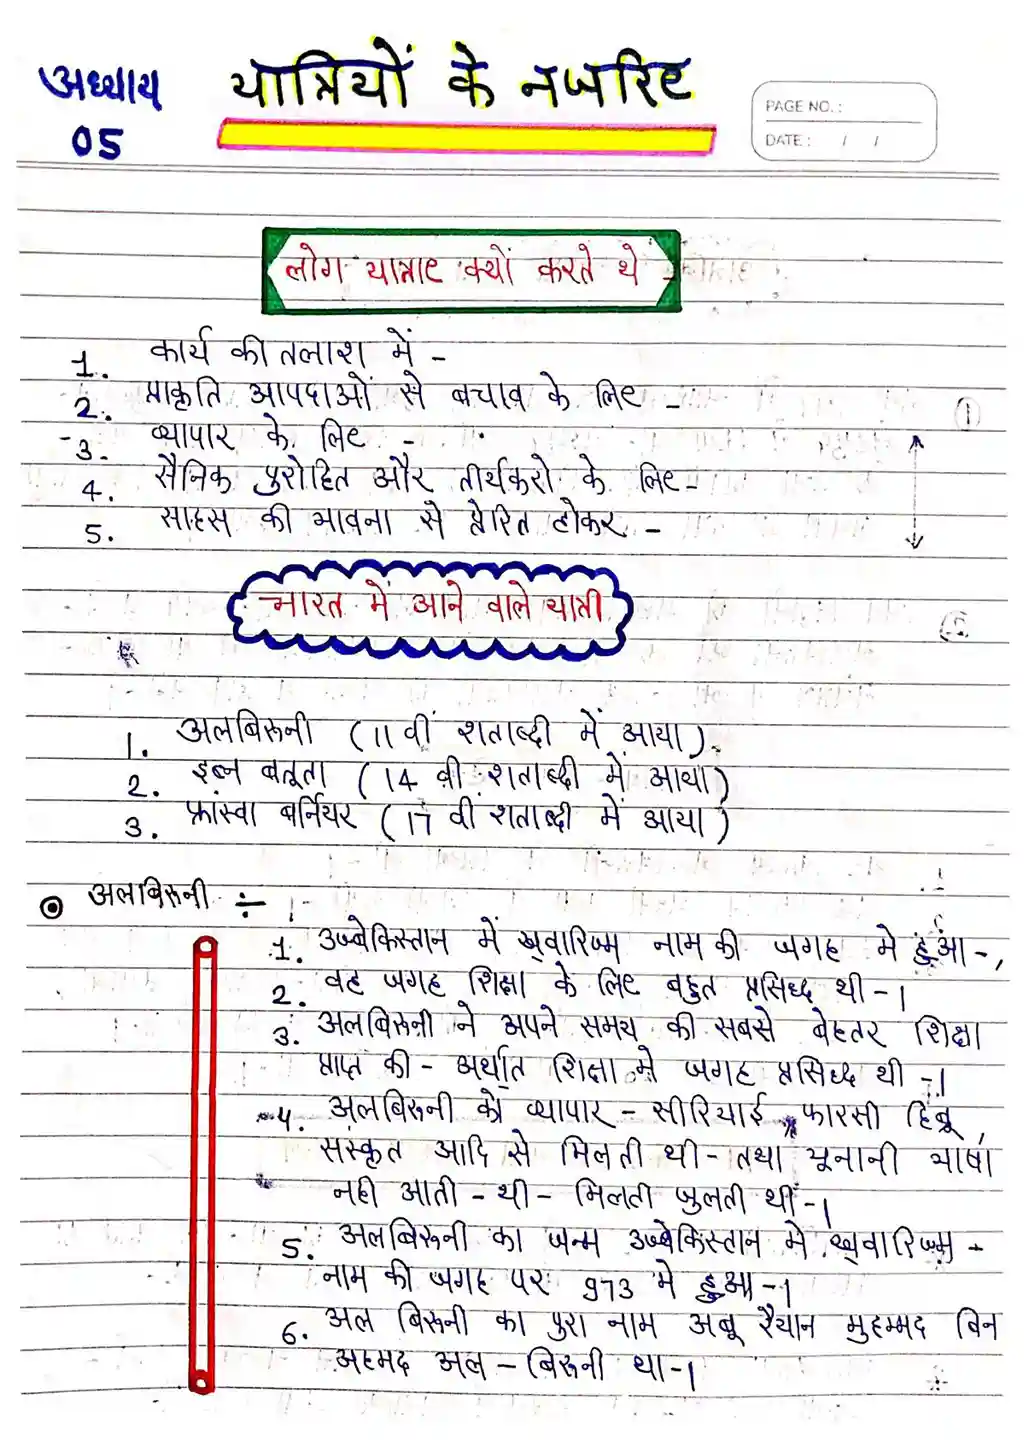 अध्याय
05
यात्रियों के नजरिए
PAGE NO. :
DATE : / /
लोग यात्राए क्यों करते थे -
1. कार्य की तलाश में -
2. प्राकृति आपदाओं से बचाव के लिए -
3. व्यापार के लिए -
4. सैनिक पुरोहित और तीर्थकरो के लिए -
5. साहस की भावना से प्रेरित होकर -
भारत में आने वाले यात्री
1. अलबिरूनी (11 वीं शताब्दी में आया)
2. इब्न बतूता (14 वी शताब्दी में आया)
3. फ्रांस्वा बर्नियर (17 वीं शताब्दी में आया)
अलबिरूनी ÷
1. उज्बेकिस्तान में ख़्वारिज्म नाम की जगह मे हुआ -,
2. वह जगह शिक्षा के लिए बहुत प्रसिध्द थी -।
3. अलबिरूनी ने अपने समय की सबसे बेहतर शिक्षा
प्राप्त की - अर्थात शिक्षा मे जगह प्रसिध्द थी -।
4. अलबिरूनी को व्यापार - सीरियाई, फारसी हिब्रू,
संस्कृत आदि से मिलती थी - तथा यूनानी भाषा
नही आती - थी - मिलती जुलती थीं -।
5. अलबिरूनी का जन्म उज्बेकिस्तान मे ख़्वारिज्म -
नाम की जगह पर 973 मे हुआ -।
6. अल बिरूनी का पुरा नाम अबू रैयान मुहम्मद बिन
अहमद अल - बिरूनी था -।